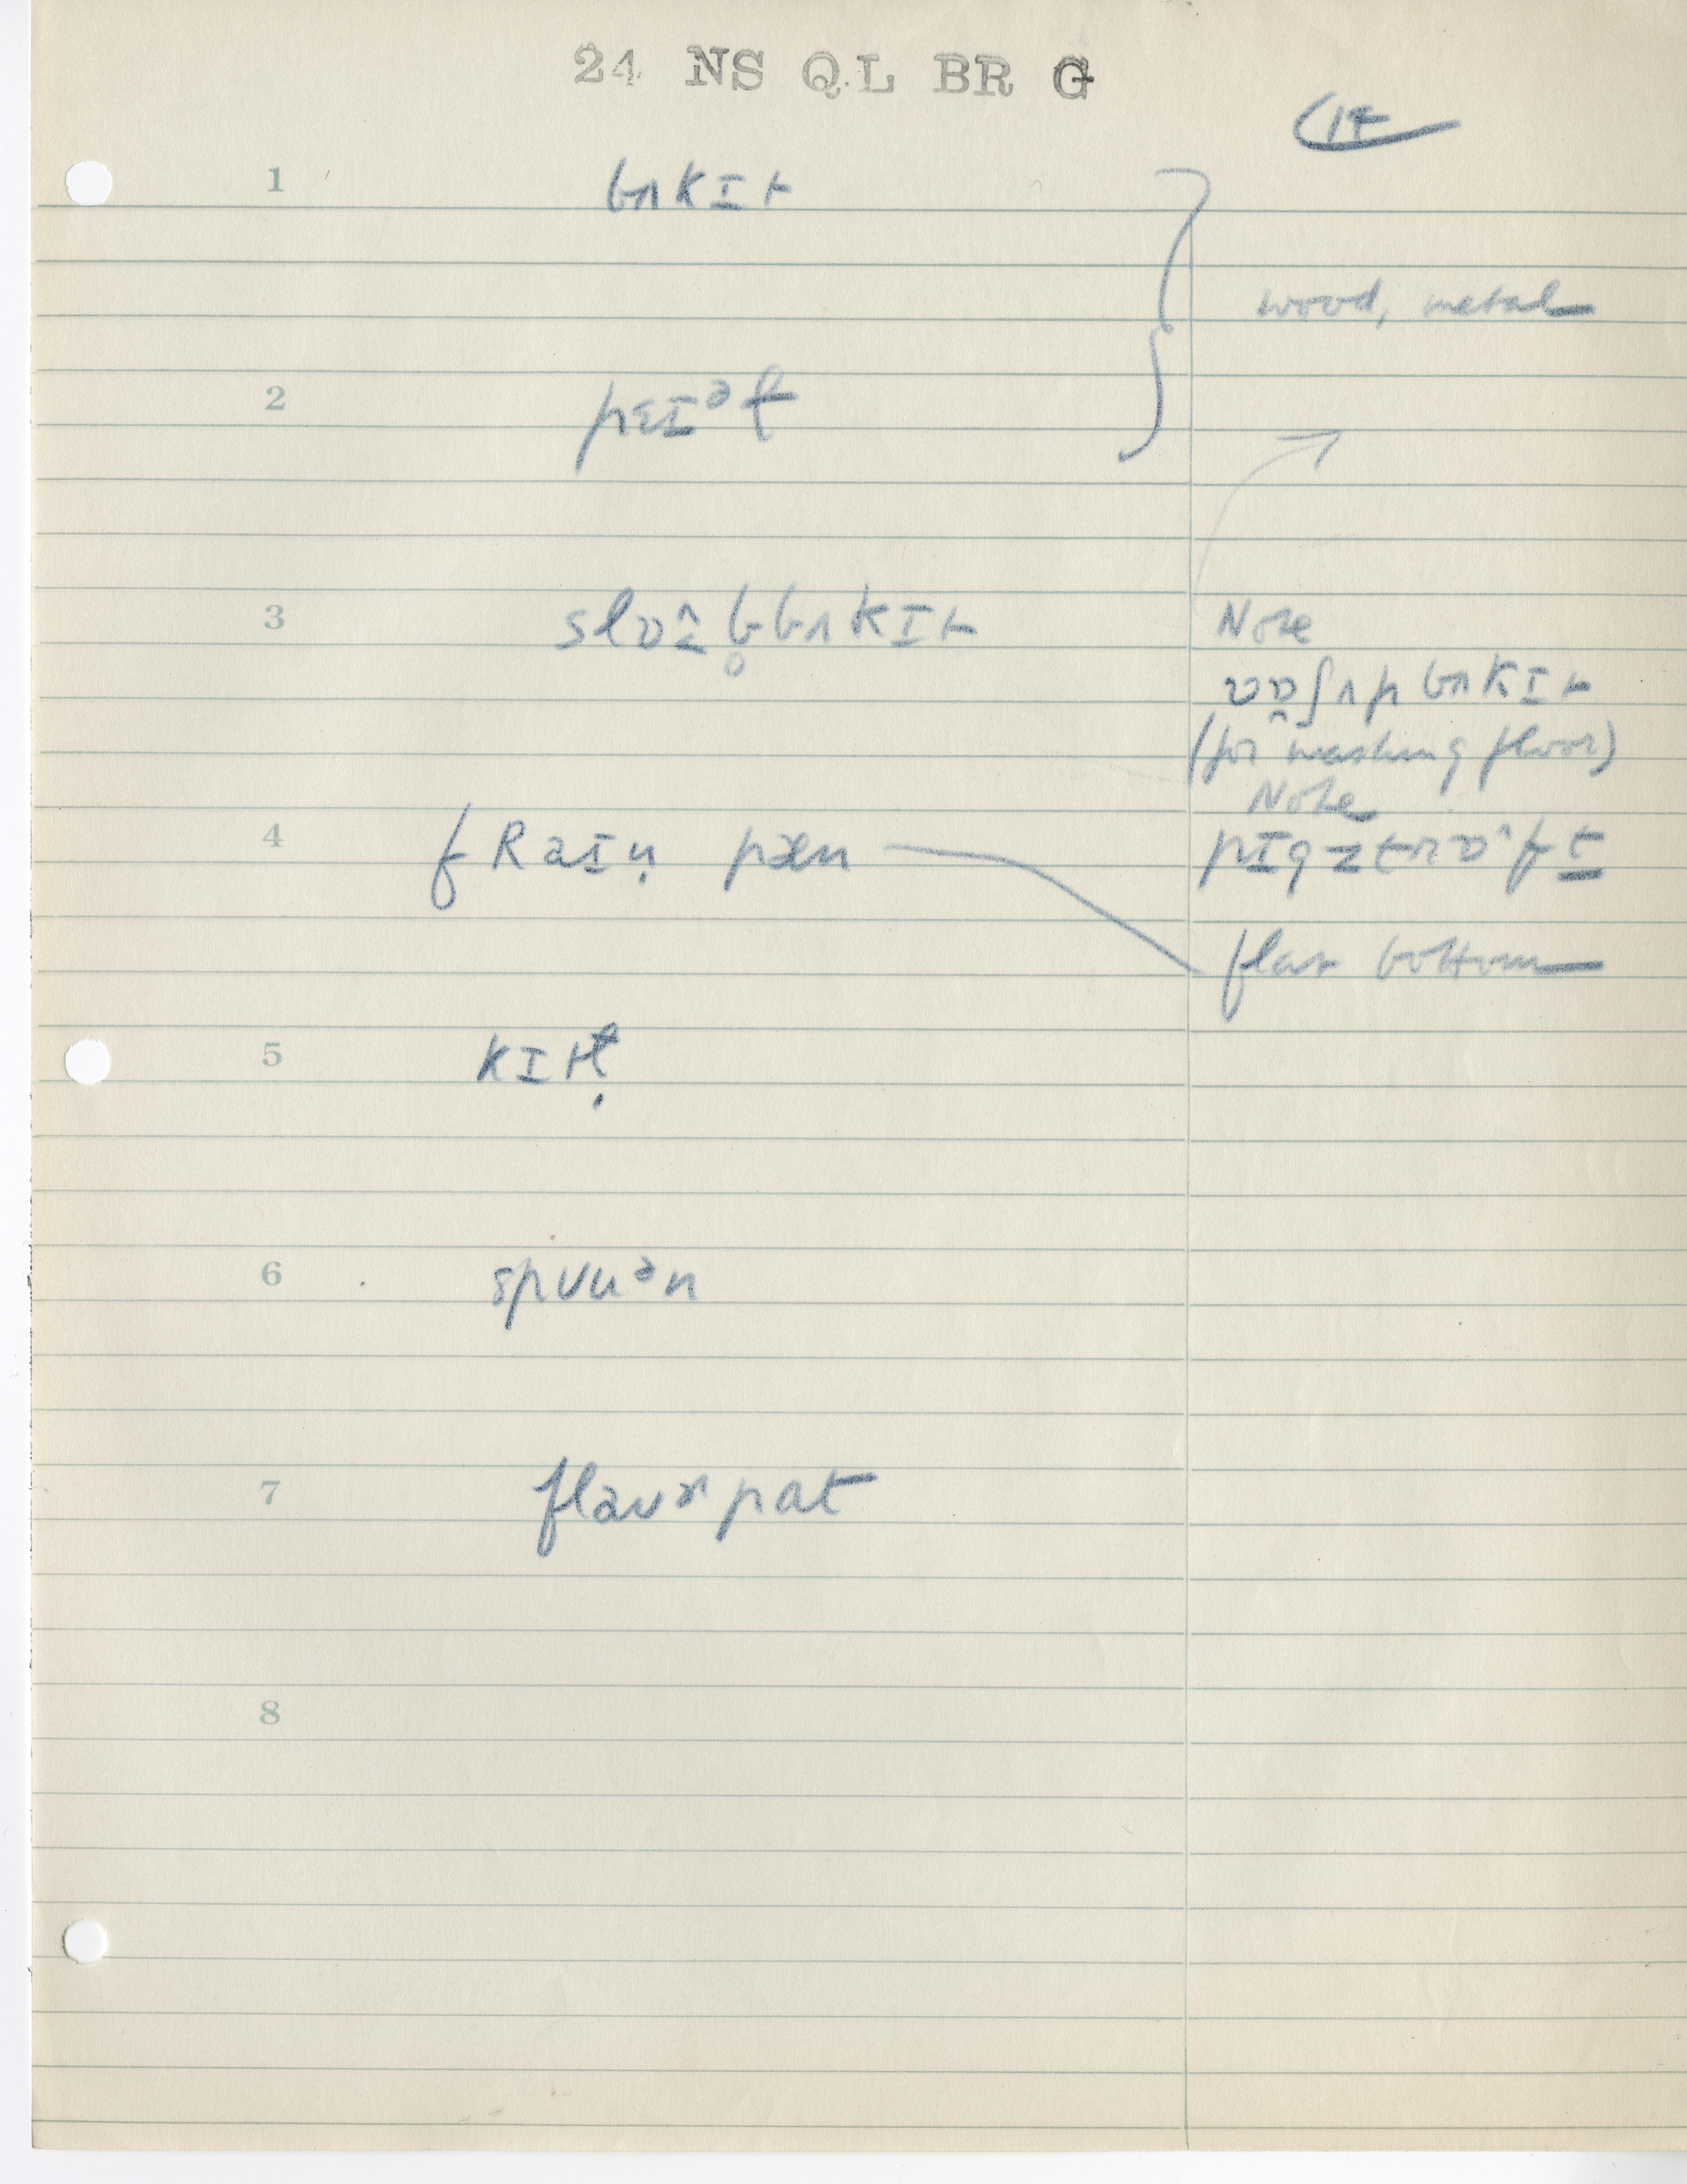 24 NS QL BR G
17
1 bʌkɪt
wood, metal
2 pɛɪᵊɫ
3 slɒɪ̂b̥bʌkɪt
Note
wɒ̯ʃʌp bʌkɪt
(for washing floor)
Note
4 fRaɪṇ pæn
pɪgz trɒ^ft
flat bottom
5 kɪtɫ̣
6 spʊuᵊn
7 flaʊɚpat
8